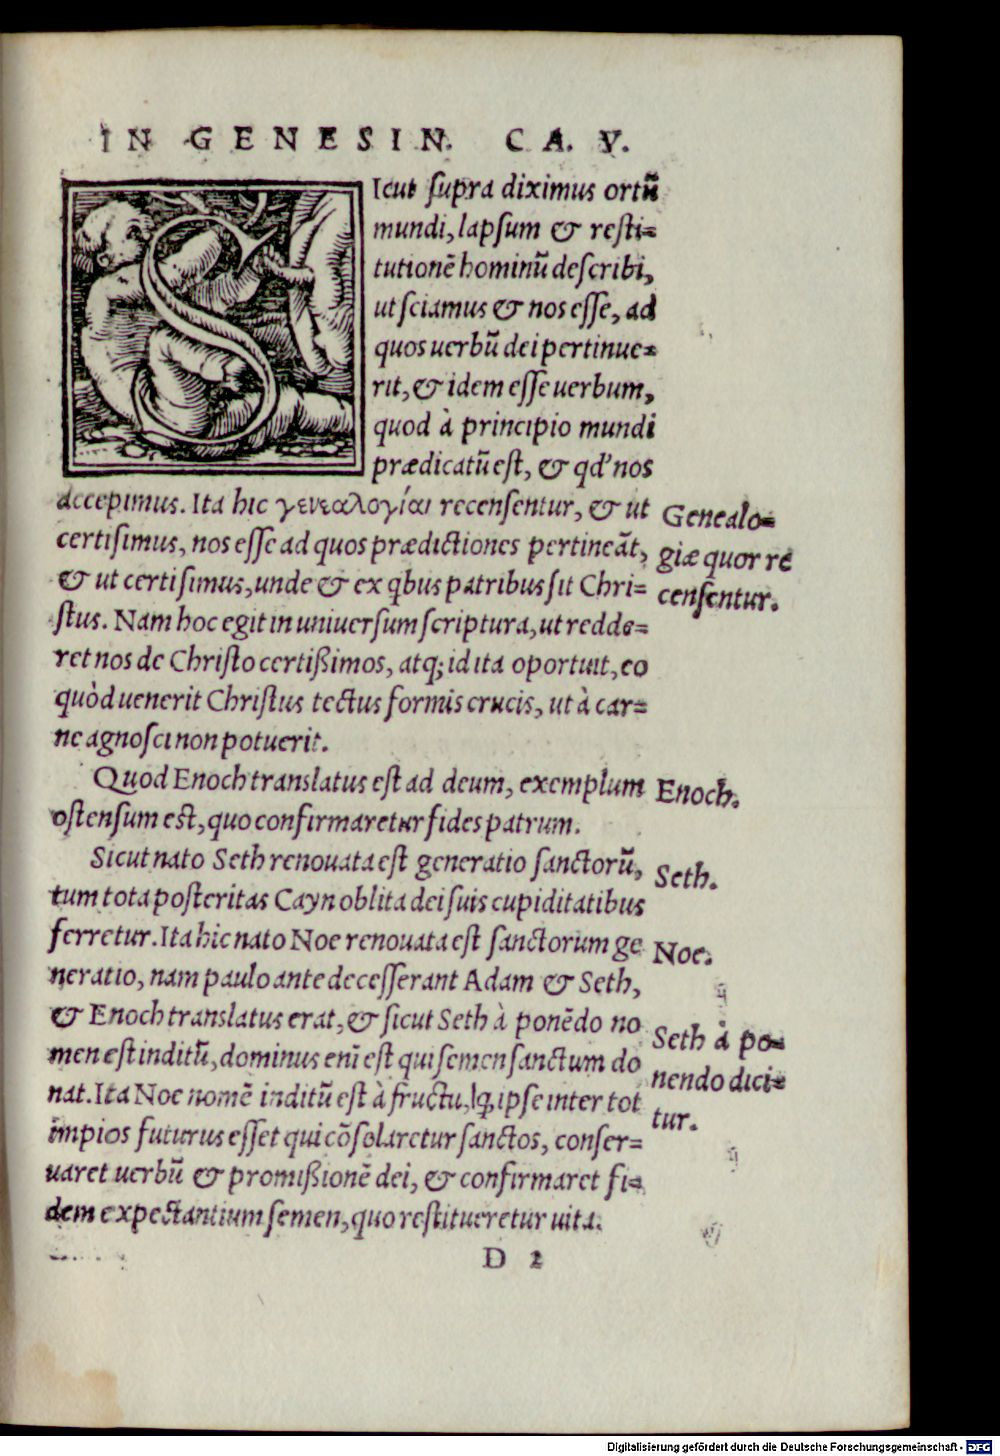 IN GENESIN. CA. V.
SIcut supra diximus ortũ
mundi, lapsum & resti=
tutionẽ hominũ describi,
ut sciamus & nos esse, ad
quos uerbũ dei pertinue=
rit, & idem esse uerbum,
quod à principio mundi
prædicatũ est, & qd' nos
accepimus. Ita hic γενεαλογίαι recensentur, & ut
certisimus, nos esse ad quos prædictiones pertineãt,
& ut certisimus, unde & ex qbus patribus sit Chri=
stus. Nam hoc egit in uniuersum scriptura, ut redde=
ret nos de Christo certißimos, atq; id ita oportuit, eo
quòd uenerit Christus tectus formis crucis, ut à car=
ne agnosci non potuerit.
Genealo=
giæ quor re
censentur.
Quod Enoch translatus est ad deum, exemplum
ostensum est, quo confirmaretur fides patrum.
Enoch.
Sicut nato Seth renouata est generatio sanctorũ,
tum tota posteritas Cayn oblita dei suis cupiditatibus
ferretur. Ita hic nato Noe renouata est sanctorum ge
neratio, nam paulo ante decesserant Adam & Seth,
& Enoch translatus erat, & sicut Seth à ponẽdo no
men est inditũ, dominus eni est qui semen sanctum do
nat. Ita Noe nomẽ inditũ est à fructu, ꝙ ipse inter tot
impios futurus esset qui cõsolaretur sanctos, conser=
uaret uerbũ & promißionẽ dei, & confirmaret fi=
dem expectantium semen, quo restitueretur uita.
Seth.
Noe.
Seth à po=
nendo dici=
tur.
D 2
Digitalisierung gefördert durch die Deutsche Forschungsgemeinschaft - DFG